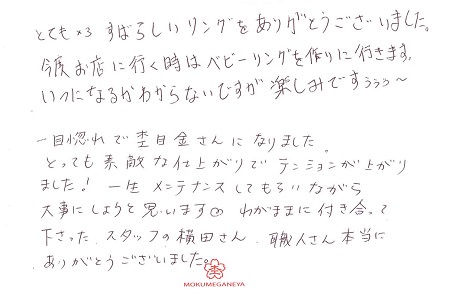 とても×3 すばらしいリングをありがとうございました。
今度お店に行く時はベビーリングを作りに行きます。
いつになるかわからないですが楽しみですぅぅぅ〜
一目惚れで杢目金さんになりました。
とっても素敵な仕上がりでテンションが上がり
ました！一生メンテナンスしてもらいながら
大事にしようと思います わがままに付き合って
下さった、スタッフの横田さん、職人さん本当に
ありがとうございました。
MOKUMEGANEYA